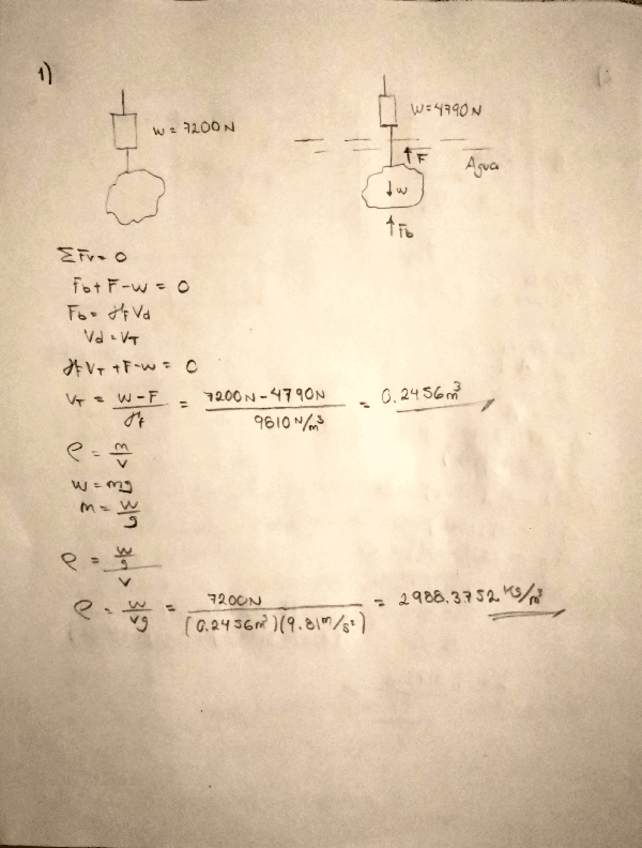 1)
W = 7200 N
W = 4790 N
↑F
Agua
↓W
↑Fb
ΣFv = 0
Fb + F - W = 0
Fb = γf Vd
Vd = VT
γf VT + F - W = 0
VT = (W - F)/γf = (7200N - 4790N)/(9810 N/m³) = 0.2456 m³
ρ = m/V
W = mg
m = W/g
ρ = (W/g)/V
ρ = W/Vg = 7200N/((0.2456m³)(9.81m/s²)) = 2988.3752 Kg/m³